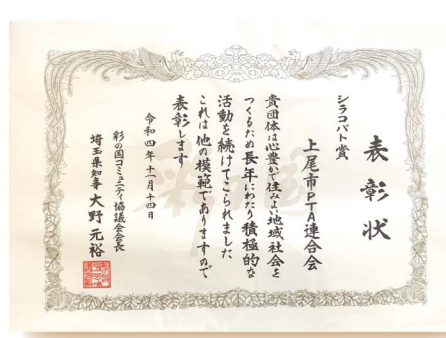 表彰状
シラコバト賞
上尾市PTA連合会
貴団体は心豊かで住みよい地域社会を
つくるため長年にわたり積極的な
活動を続けてこられました
これは他の模範でありますので
表彰します
令和四年十一月十四日
彩の国コミュニティ協議会会長
埼玉県知事 大野元裕